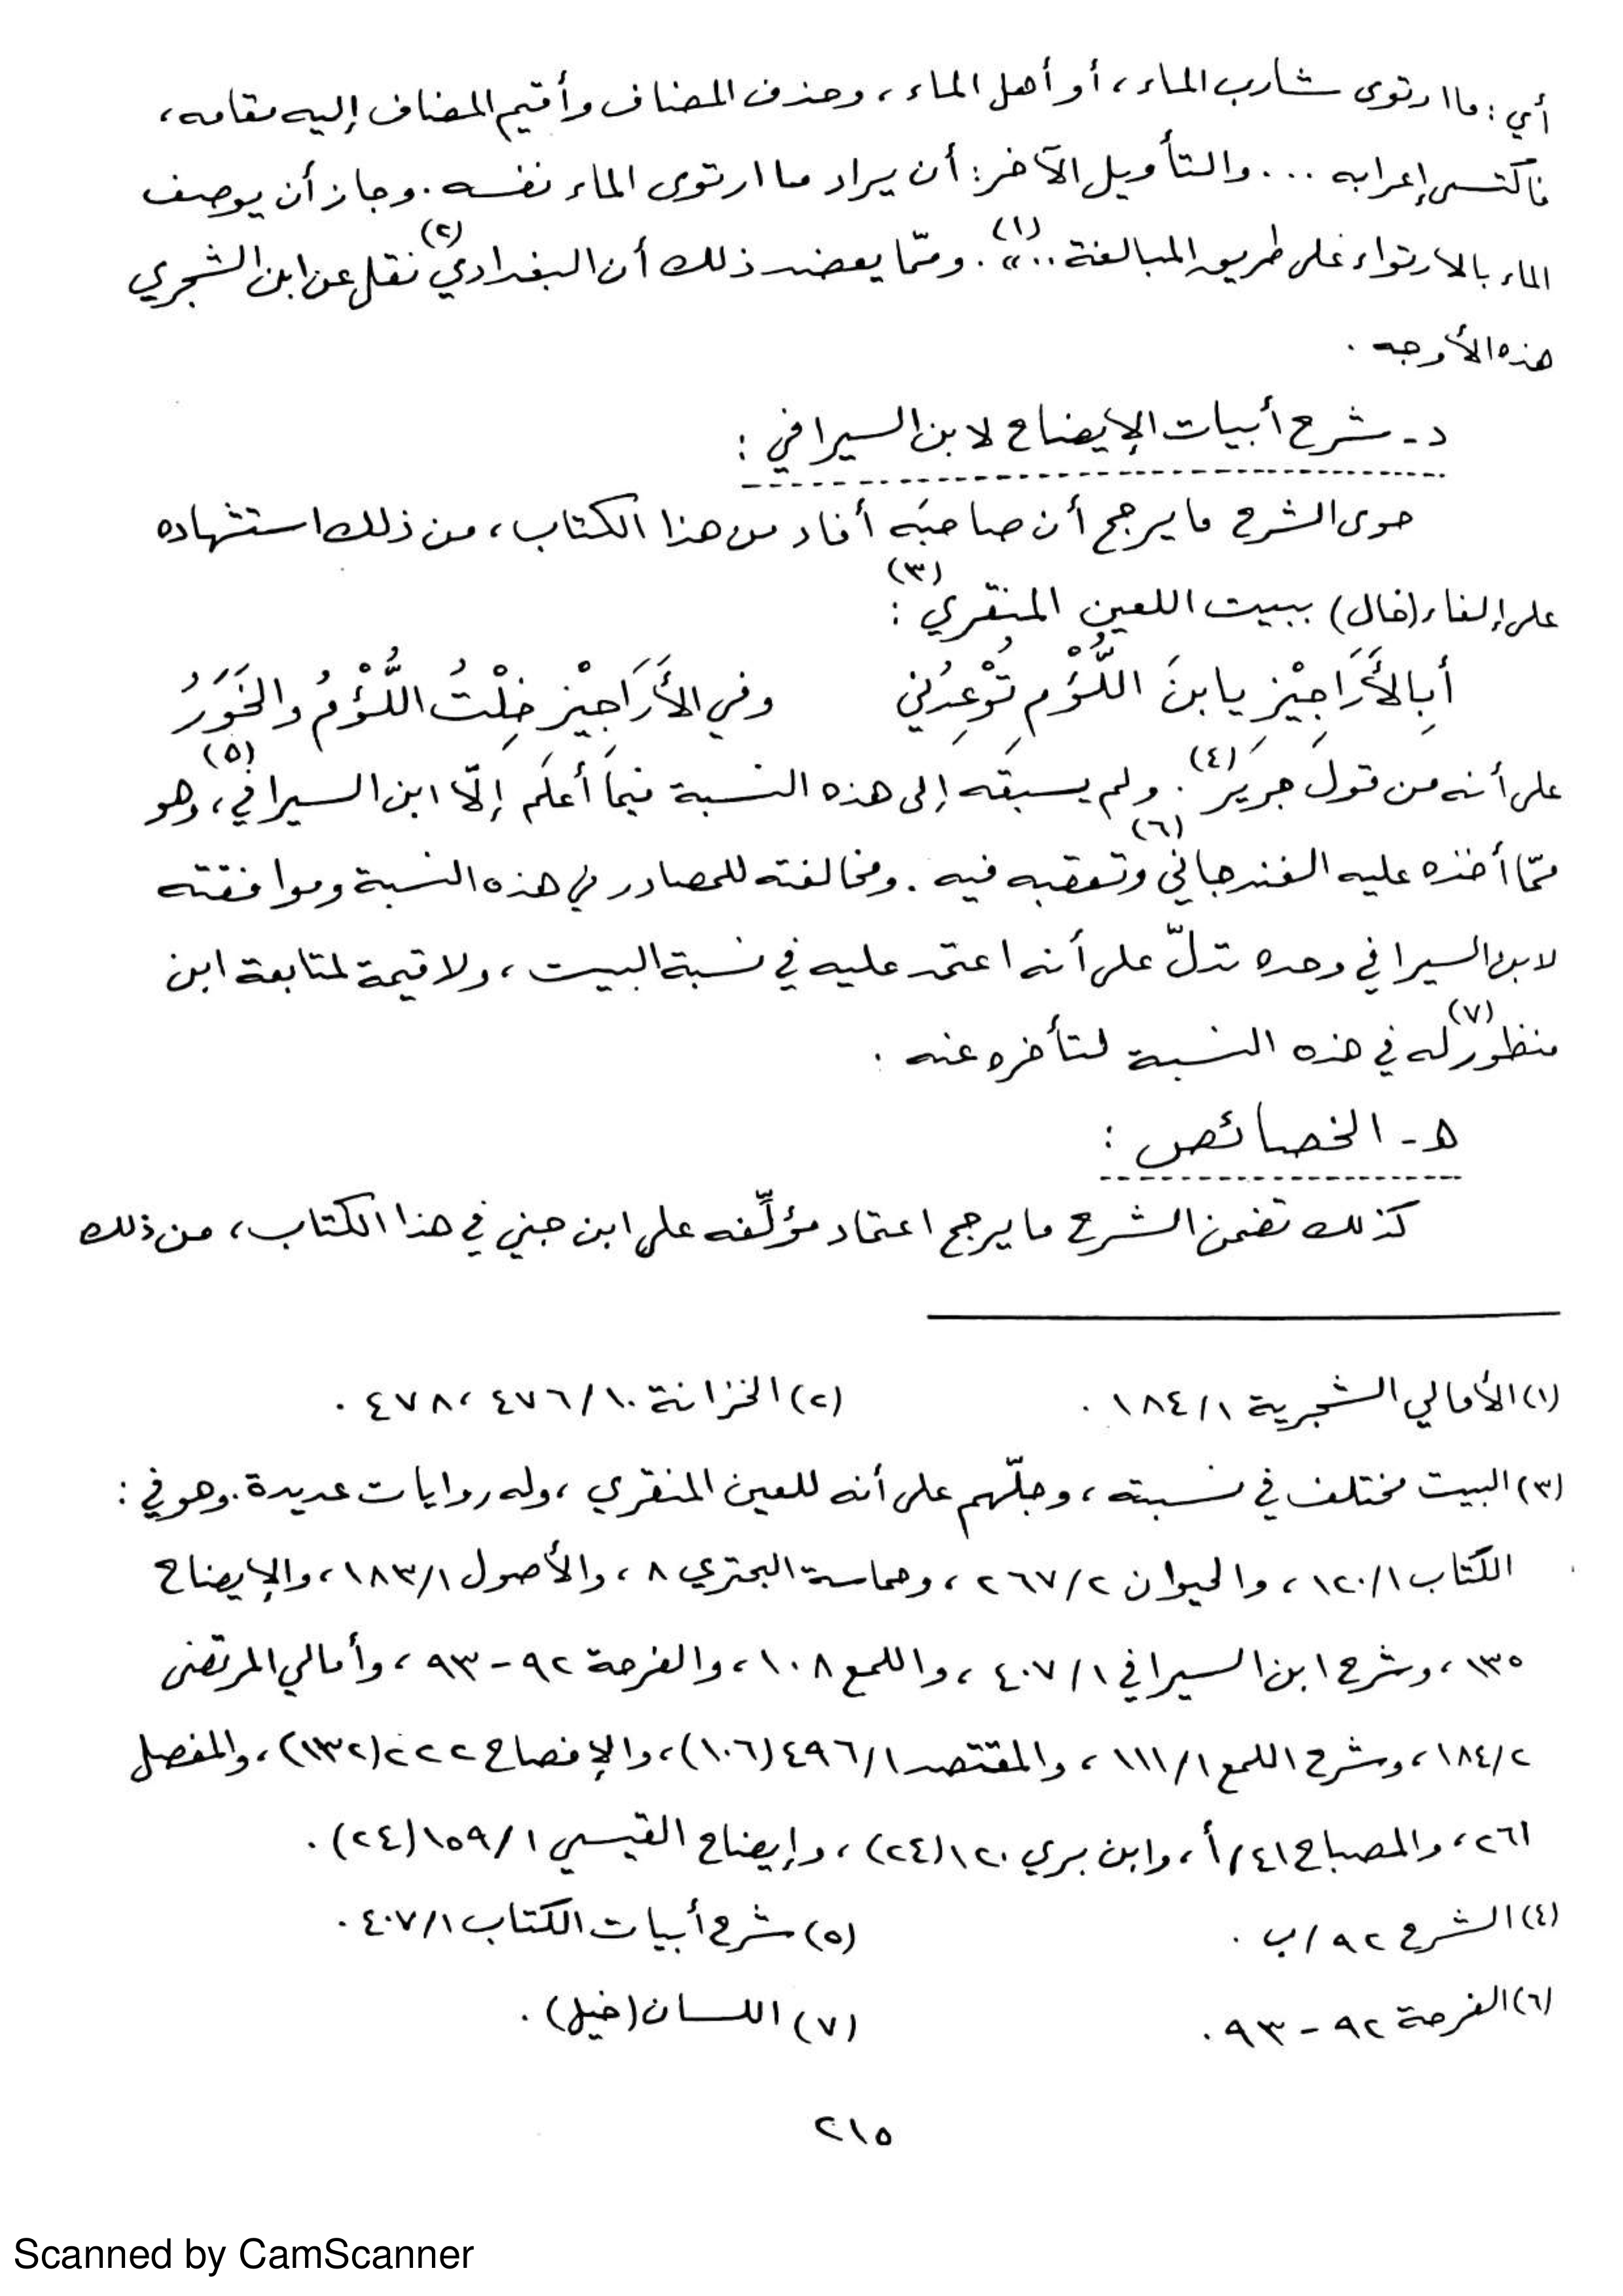 أي : ما ارتوى شارب الماء ، أو أهل الماء ، وحذف المضاف وأقيم المضاف إليه مقامه ،
فاكتسى إعرابه ... والتأويل الآخر : أن يراد ما ارتوى الماء نفسه . وجاز أن يوصف
الماء بالارتواء على طريق المبالغة .. » (١) . وممّا يعضد ذلك أن البغدادي (٢) نقل عن ابن الشجري
هذه الأوجه .
د - شرح أبيات الإيضاح لابن السيرافي :
حوى الشرح ما يرجح أن صاحبَه أفاد من هذا الكتاب ، من ذلك استشهاده
على إلغاء (خال) ببيت اللعين المنقري (٣) :
أَبِالأَرَاجِيْزِ يا ابنَ اللُّؤْمِ تُوْعِدُني وفي الأَرَاجِيْزِ خِلْتُ اللُّؤْمُ والخَوَرُ
على أنه من قول جرير (٤) . ولم يسبقه إلى هذه النسبة فيما أعلم إلّا ابن السيرافي (٥) ، وهو
ممّا أخذه عليه الغندجاني (٦) وتعقبه فيه . ومخالفته للمصادر في هذه النسبة وموافقته
لابن السيرافي وحده تدلّ على أنه اعتمد عليه في نسبة البيت ، ولا قيمة لمتابعة ابن
منظور (٧) له في هذه النسبة لتأخره عنه .
هـ - الخصائص :
كذلك تضمن الشرح ما يرجح اعتماد مؤلِّفه على ابن جني في هذا الكتاب ، من ذلك
(١) الأمالي الشجرية ١/١٨٤ . (٢) الخزانة ١٠/٤٧٦ ، ٤٧٨ .
(٣) البيت مختلف في نسبته ، وجلّهم على أنه للعين المنقري ، وله روايات عديدة . وهو في :
الكتاب ١/١٢٠ ، والحيوان ٢/٢٦٧ ، وحماسة البحتري ٨ ، والأصول ١/١٨٣ ، والإيضاح
١٣٥ ، وشرح ابن السيرافي ١/٤٠٧ ، واللمع ١٠٨ ، والفرحة ٩٢ - ٩٣ ، وأمالي المرتضى
٢/١٨٤ ، وشرح اللمع ١/١١١ ، والمقتصد ١/٤٩٦ (١٠٦) ، والإفصاح ٢٢٢ (١٣٢) ، والمفصل
٢٦١ ، والمصباح ٤١/أ ، وابن بري ١٢٠ (٢٤) ، وإيضاح القيسي ١/١٥٩ (٢٤) .
(٤) الشرح ٩٢/ب . (٥) شرح أبيات الكتاب ١/٤٠٧ .
(٦) الفرحة ٩٢ - ٩٣ . (٧) اللسان (خيل) .
٢١٥
Scanned by CamScanner